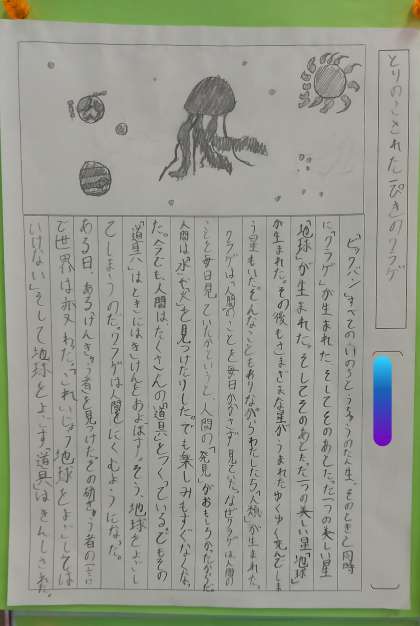 とりのこされた一ぴきのクラゲ
「ビックバン」すべてのいのうとうちゅうのたん生、そのときと同時
に、「クラゲ」が生まれた。そしてそのあとた、一つの美しい星
「地球」が生まれた。そしてそのあとた一つの美しい星「地球」
が生まれた。その後もさまざまな星が、うまれたゆくゆく死んでしま
う星もいた。そんなこともありながらわたしたち「人類」が生まれた。
クラゲは、「人間」のことを毎日かかさず見ていた。なぜクラゲは人間の
ことを毎日見ていたかというと、人間の「発見」がおもしろかったからだ。
人間は「水」や「火」を見つけたりした。でも楽しみもすくなくなっ
た。今でも人間はたくさんの「道具」をつくっている。でもその
「道具」はときにはきけんをおよぼす。そう、地球をよごし
てしまうのだ。クラゲは人間をにくむようになった。
ある日、あるけんきゅう者を見つけた。その研きゅう者の一言
で世界は変わった。「これいじょう地球をよごしては
いけない」そして地球をよごす道具はきんしされた。